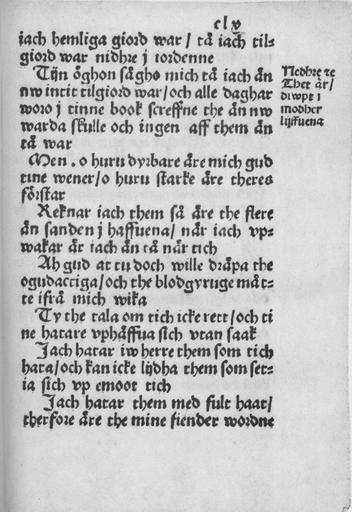 clv
iach hemliga giord war / tå iach til-
giord war nidhre j iordenne
Tijn öghon sågho mich tå iach ån
nw intit tilgiord war/och alle daghar
woro j tinne book screffne the ån nw
warda skulle och ingen aff them ån
tå war
Nedhre ze
Thet år/
diwpt i
modher
lijffuena
Men . o huru dyrbare åre mich gud
tine wener/o huru starke åre theres
förstar
Reknar iach them så åre the flere
ån sanden j haffuena/ når iach vp-
wakar år iach ån tå når tich
Ah gud at tu doch wille dråpa the
ogudactiga/och the blodgyruge måt-
te ifrå mich wika
Ty the tala om tich icke rett/och ti
ne hatare vphåffua sich vtan saak
Jach hatar iw herre them som tich
hata/och kan icke lijdha them som set-
ia sich vp emoot tich
Jach hatar them med fult haat/
therfore åre the mine fiender wordne